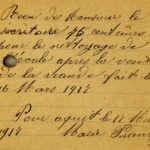 Reçu de Monsieur le
secrétaire 15 centimes
pour le nettoyage de
l'école après la vente
de la viande fait le
16 Mars 1917
Pour acquit le 17 Mars
1917
Marie